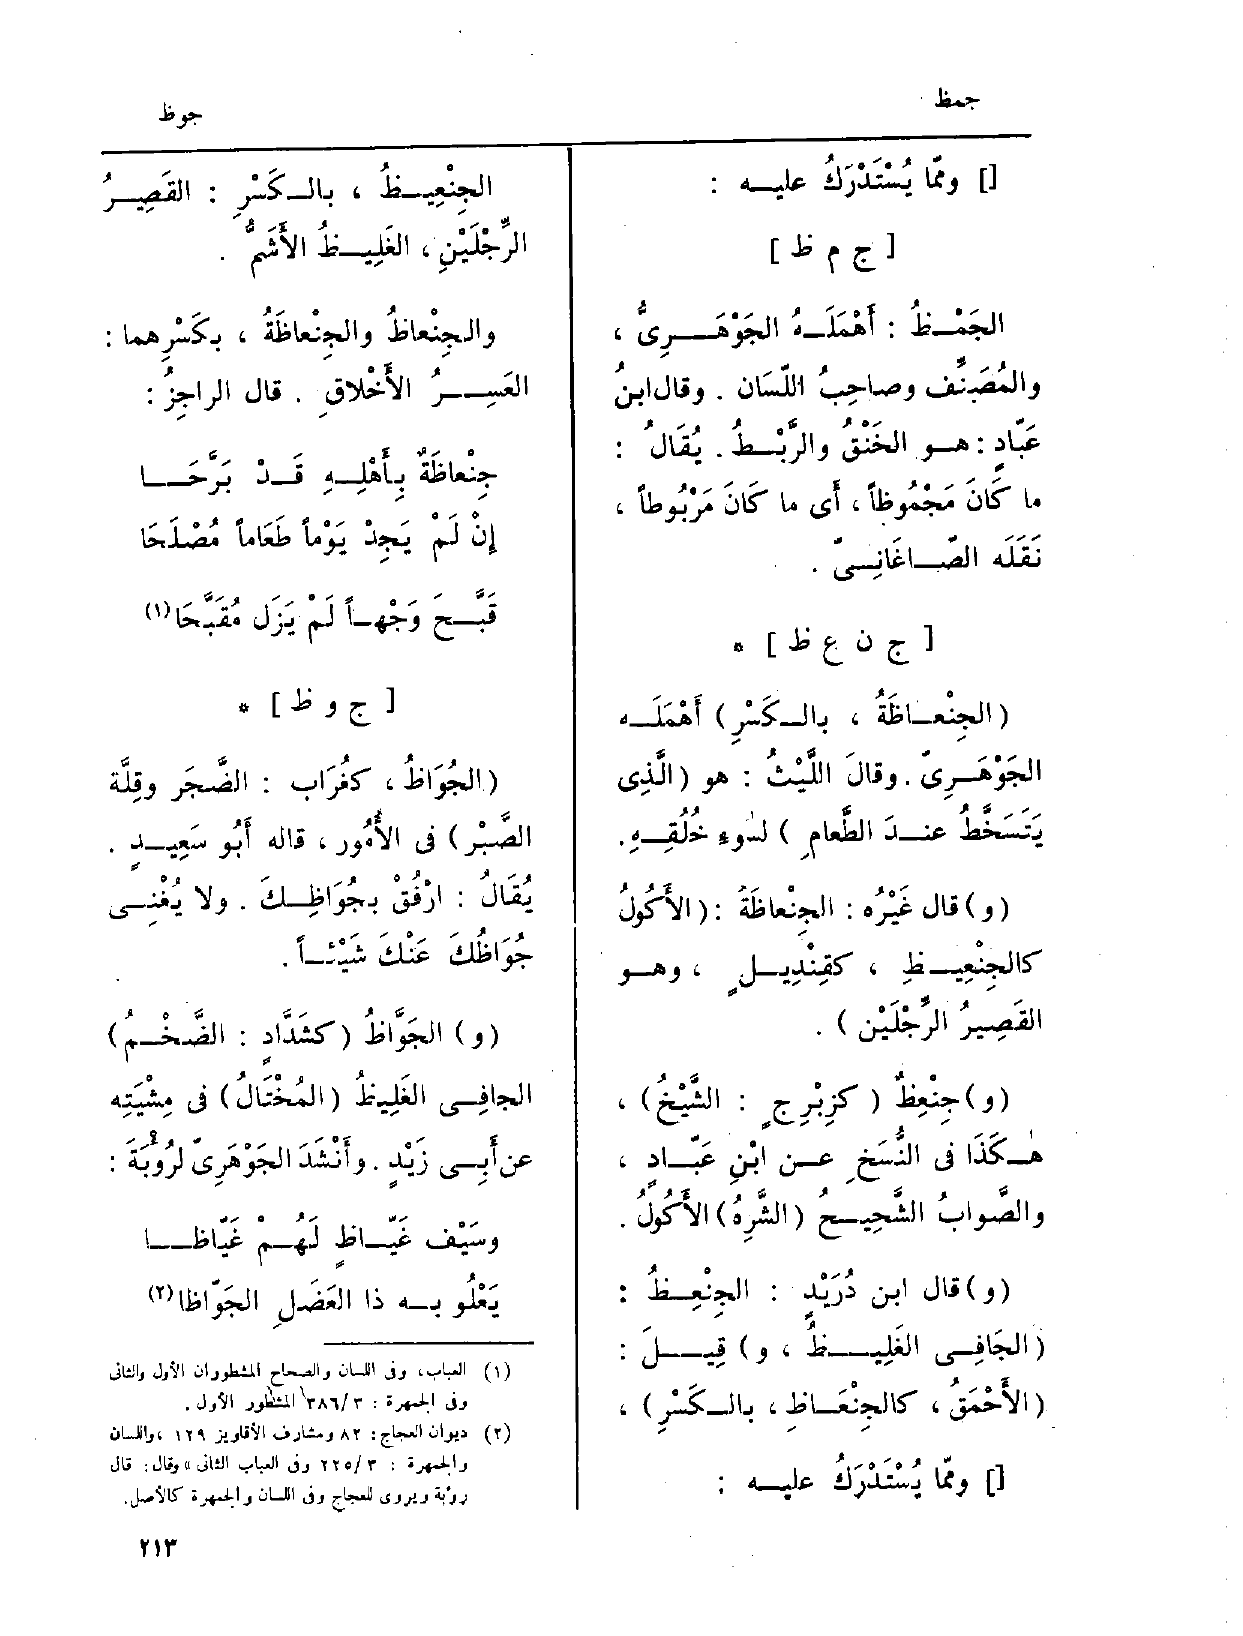 جمظ
جوظ
[] وممّا يُسْتَدْرَكُ عليـه :
[ ج م ظ ]
الجَمْـظُ : أَهْمَلَـهُ الجَوْهَـرِىُّ ،
والمُصَنِّف وصاحِبُ اللّسَان . وقال ابنُ
عَبّادٍ : هـو الخَنْقُ والرَّبْـطُ . يُقَالُ :
ما كَانَ مَجْمُوظاً ، أَى ما كَانَ مَرْبُوطاً ،
نَقَلَه الصّـاغَانِـىّ .
[ ج ن ع ظ ] *
(الجِنْعَـاظَةُ ، بالـكَسْرِ) أَهْمَلَـه
الجَوْهَـرِىّ . وقالَ اللَّيْثُ : هو (الَّذِى
يَتَسَخَّطُ عنـدَ الطَّعامِ ) لسُوءِ خُلُقِـهِ.
(و) قال غَيْرُه : الجِنْعاظَةُ : (الأَكُولُ
كالجِنْعِيـظِ ، كقِنْدِيـلٍ ، وهـو
القَصِيرُ الرِّجْلَيْن ) .
(و) جِنْعِظٌ ( كزِبْرِجٍ : الشَّيْخُ) ،
هٰـكَذَا فى النُّسَخِ عـن ابْنِ عَبّـادٍ ،
والصَّوابُ الشَّحِيـحُ (الشَّرِهُ) الأَكُولُ .
(و) قال ابن دُرَيْدٍ : الجِنْعِـظُ :
(الجَافِـى الغَلِيـظُ ، و) قِيـلَ :
(الأَحْمَقُ ، كالجِنْعَـاظِ ، بالـكَسْرِ) ،
[] وممّا يُسْتَدْرَكُ عليـه :
الجِنْعِيـظُ ، بالـكَسْرِ : القَصِيـرُ
الرِّجْلَيْنِ ، الغَلِيـظُ الأَشَمُّ .
والجِنْعاظُ والجِنْعاظَةُ ، بكَسْرِهما :
العَسِـرُ الأَخْلاقِ . قال الراجِزُ :
جِنْعاظَةٌ بِأَهْلِـهِ قَـدْ بَرَّحَـا
إِنْ لَمْ يَجِدْ يَوْماً طَعَاماً مُصْلَحَا
قَبَّـحَ وَجْهـاً لَمْ يَزَل مُقَبَّحَا(١)
[ ج و ظ ] *
(الجُوَاظُ ، كغُرَابٍ : الضَّجَر وقِلَّة
الصَّبْر) فى الأُمُور ، قاله أَبُو سَعِيـدٍ .
يُقَالُ : ارْفُقْ بجُوَاظِـكَ . ولا يُغْنِـى
جُوَاظُكَ عَنْكَ شَيْئـاً .
(و) الجَوَّاظُ (كشَدَّادٍ : الضَّخْـمُ)
الجافِـى الغَلِيظُ (المُخْتَالُ) فى مِشْيَتِه
عن أَبِـى زَيْدٍ . وأَنْشَدَ الجَوْهَرِىّ لرُؤْبَةَ :
وسَيْف غَيّـاظٍ لَهُـمْ غَيّاظَـا
يَعْلُو بـه ذا العَضَلِ الجَوّاظا(٢)
(١) العباب، وفى اللسان والصحاح المشطوران الأول والثانى
وفى الجمهرة : ٣٨٦/٣ المشطور الأول .
(٢) ديوان العجاج : ٨٢ ومشارف الأقاويز ١٢٩ ، واللسان
والجمهرة : ٢٢٥/٣ وفى العباب الثانى » وقال : قال
رؤبة ويروى للعجاج وفى اللسان والجمهرة كالأصل .
٢١٣